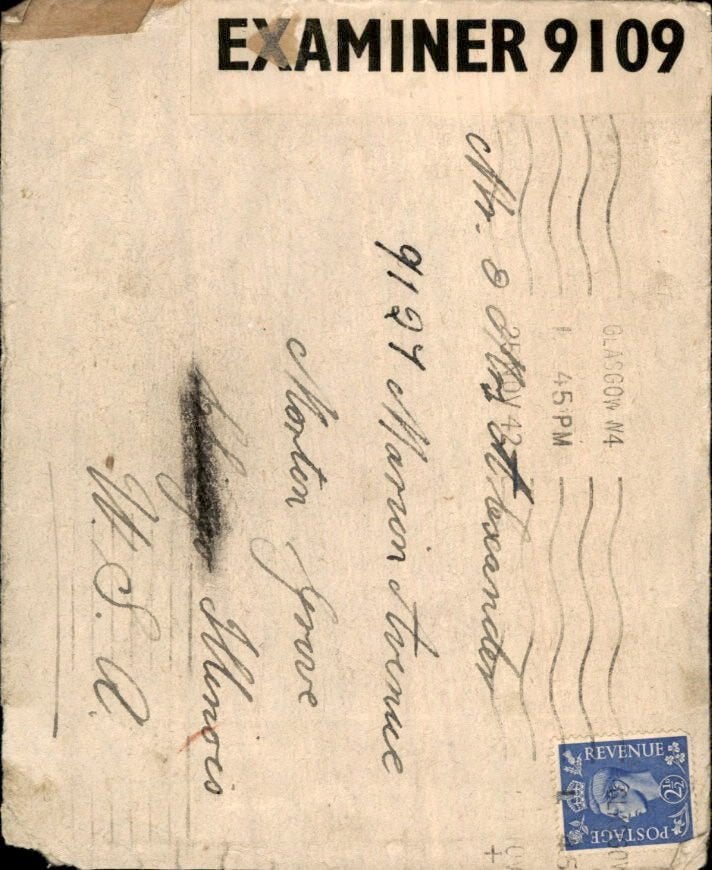 EXAMINER 9109
GLASGOW N4
1 45 PM
25 NOV 42
REVENUE
2½D
POSTAGE
Mr. & Mrs Alexander
9127 Marion Avenue
Morton Grove
Illinois
U.S.A.